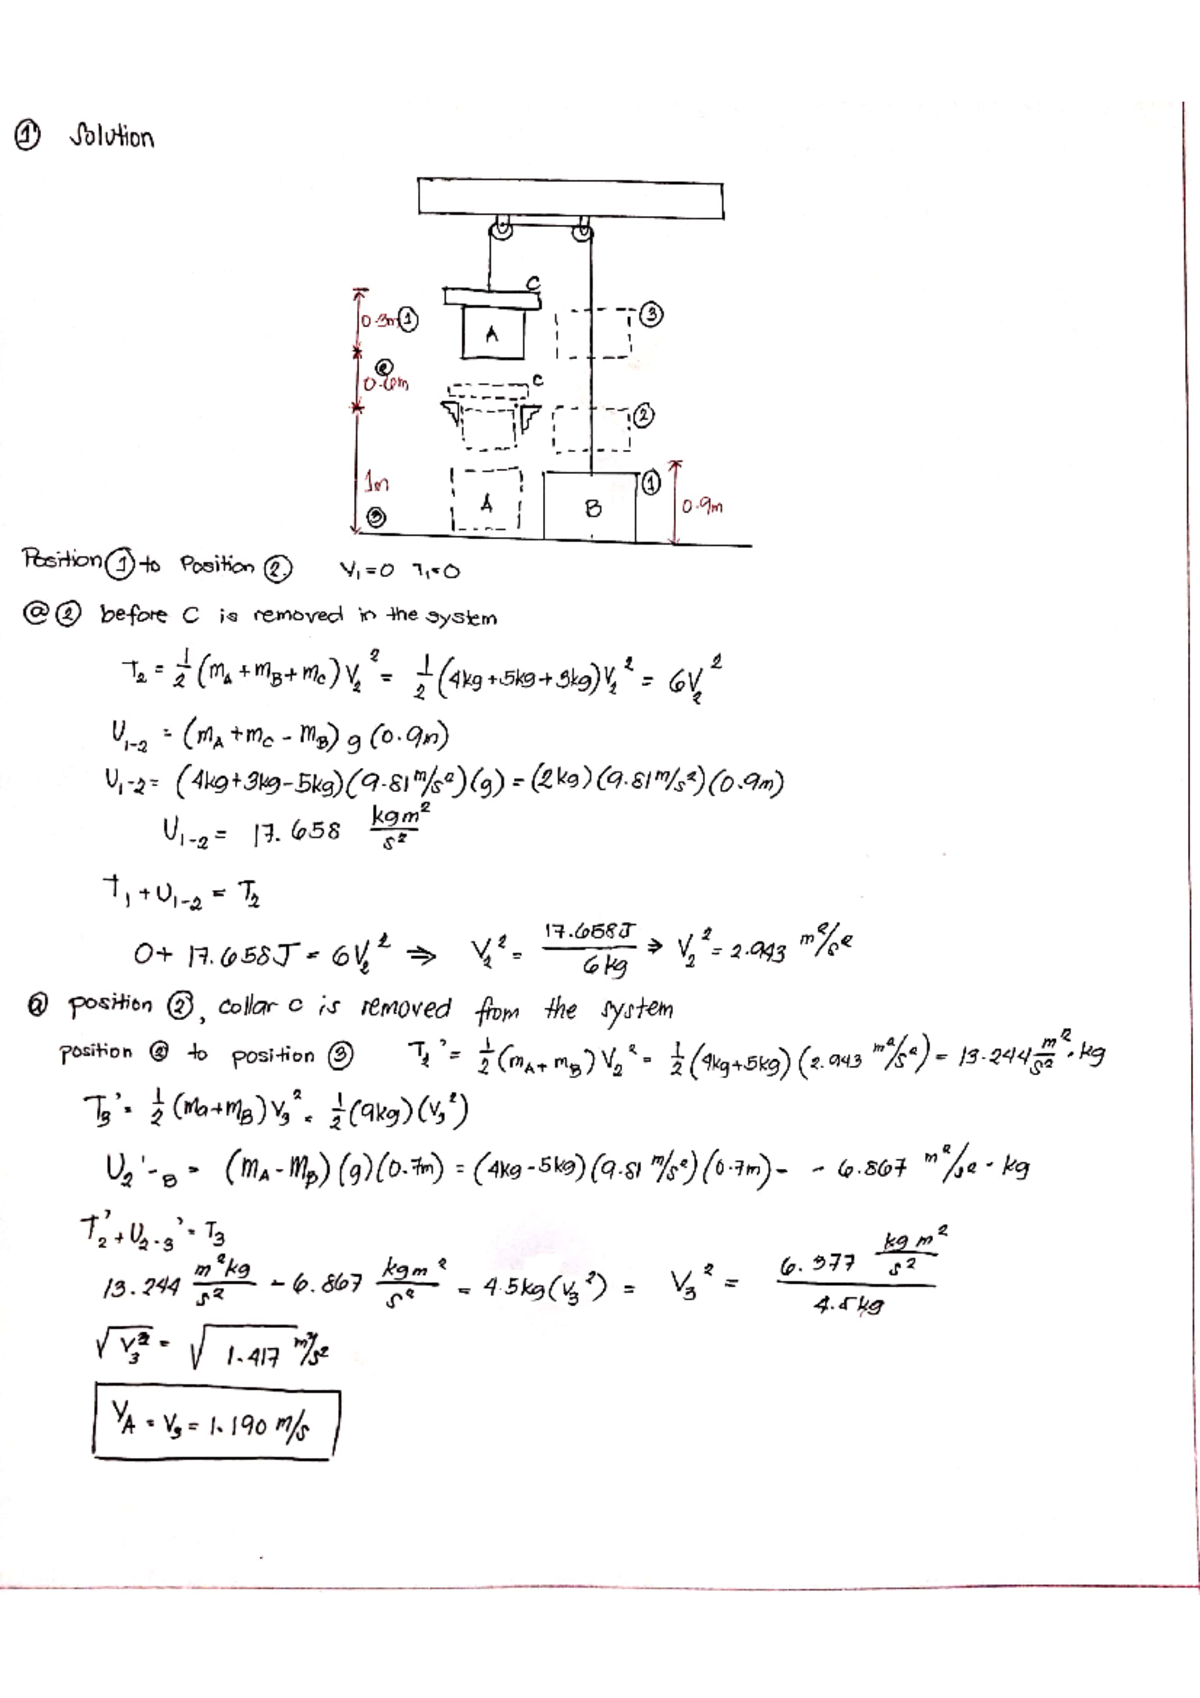 ① Solution
C
0.3m ①
A
③
②
0.6m
C
②
1m
A
B
①
0.9m
③
Position ① to Position ② V₁=0 T₁=0
@ ② before C is removed in the system
T₂ = 1/2 (mA + mB + mC) V₂² = 1/2 (4kg + 5kg + 3kg) V₂² = 6V₂²
U₁₋₂ = (mA + mC - mB) g (0.9m)
U₁₋₂ = (4kg+3kg-5kg)(9.81 m/s²)(g) = (2kg)(9.81 m/s²)(0.9m)
U₁₋₂ = 17.658 kgm²/s²
T₁ + U₁₋₂ = T₂
0 + 17.658J = 6V₂² ⇒ V₂² = 17.658J/6kg ⇒ V₂² = 2.943 m²/s²
@ position ②, collar c is removed from the system
position ② to position ③ T₂' = 1/2 (mA + mB) V₂² = 1/2 (4kg+5kg)(2.943 m²/s²) = 13.244 m²/s² · kg
T₃' = 1/2 (ma+mB) V₃² = 1/2 (9kg)(V₃²)
U₂'-₃ = (mA - mB)(g)(0.7m) = (4kg - 5kg)(9.81 m/s²)(0.7m) = - 6.867 m²/s² - kg
T₂' + U₂₋₃' = T₃
13.244 m²kg/s² - 6.867 kgm²/s² = 4.5kg (V₃²) = V₃² = 6.377 kgm²/s² / 4.5kg
√V₃² = √1.417 m²/s²
VA = V₃ = 1.190 m/s